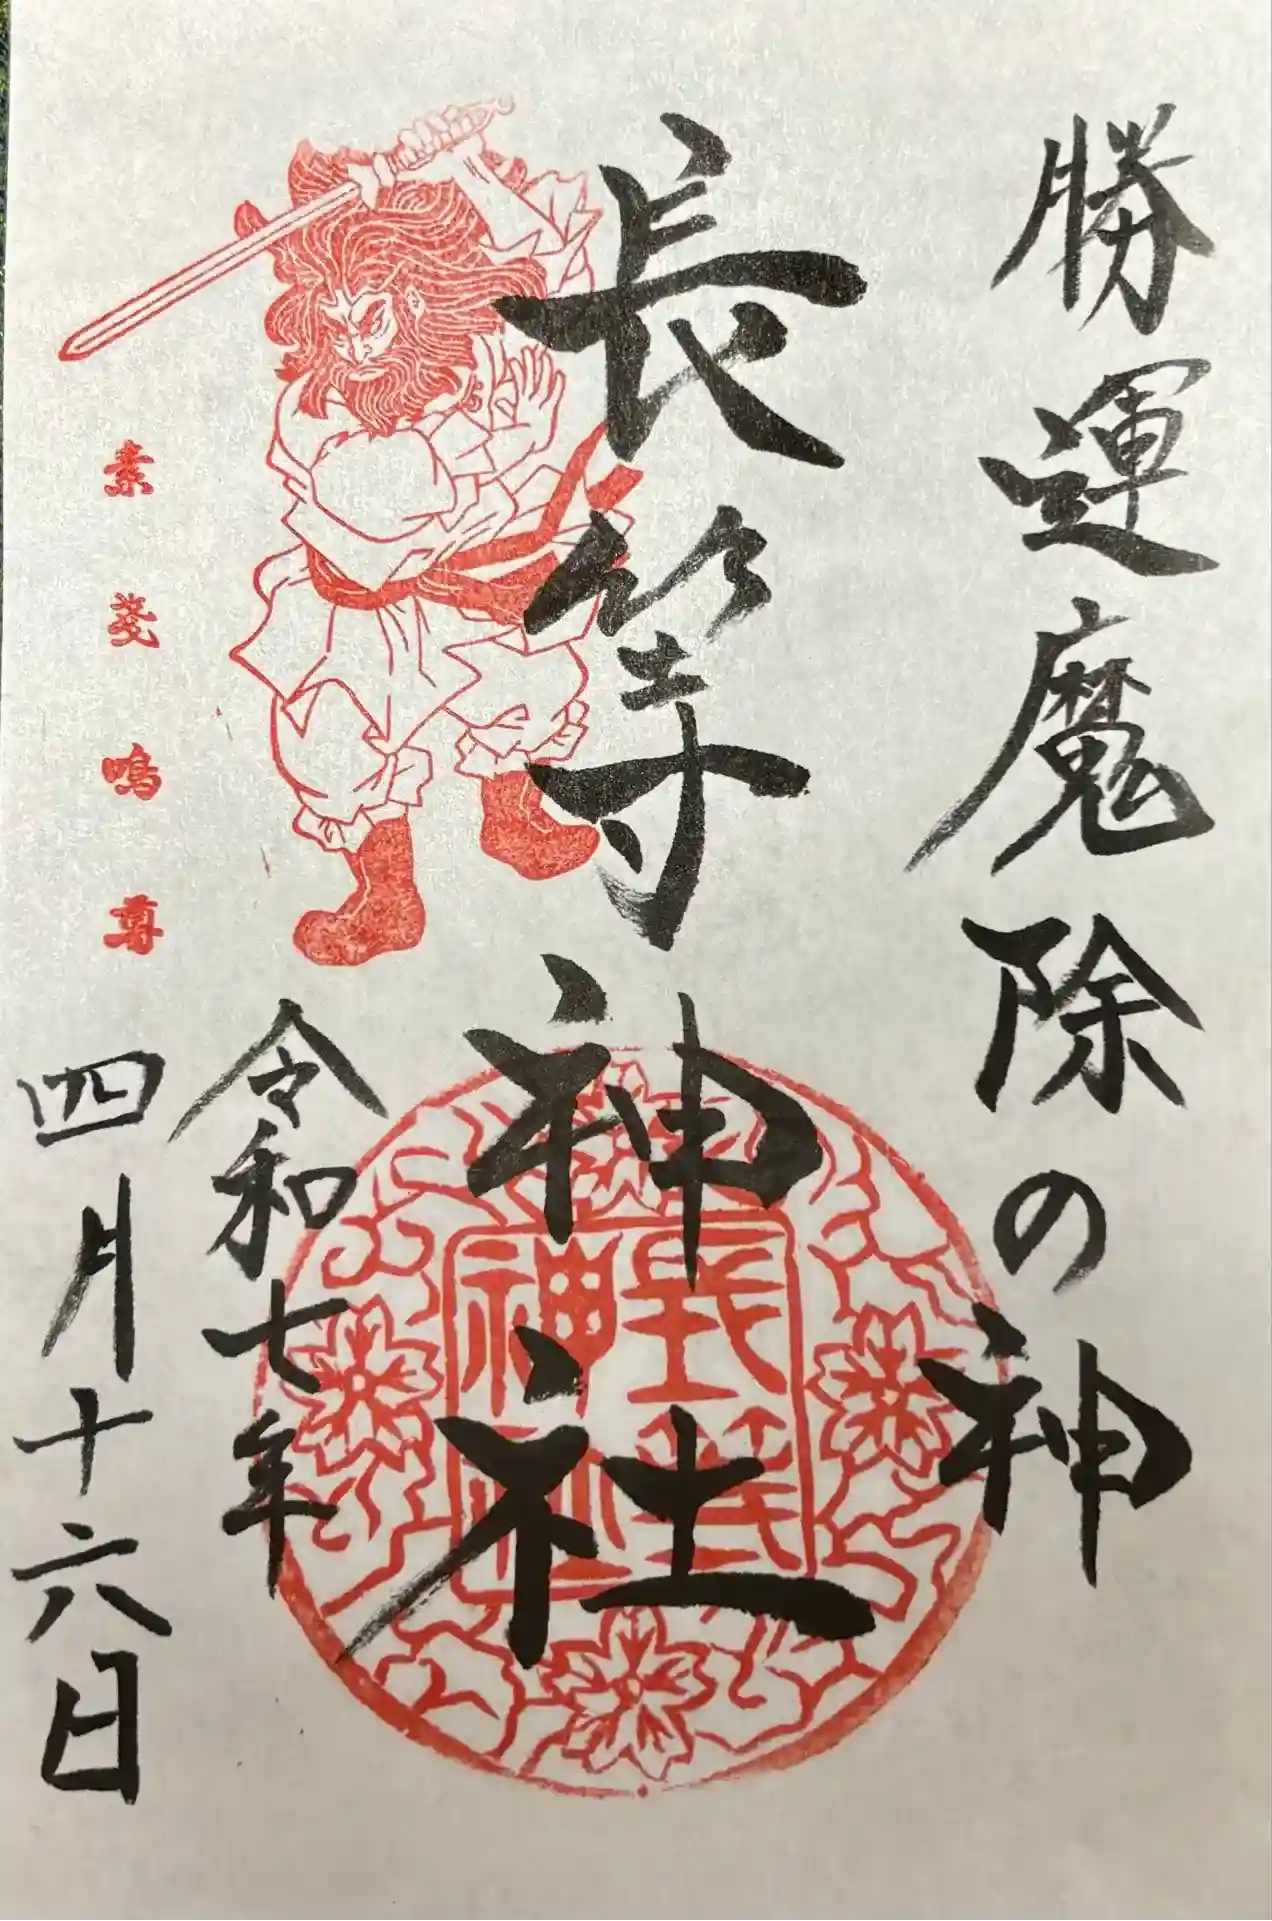 勝運魔除の神
長等神社
長等神社
令和七年
四月十六日
素戔嗚尊